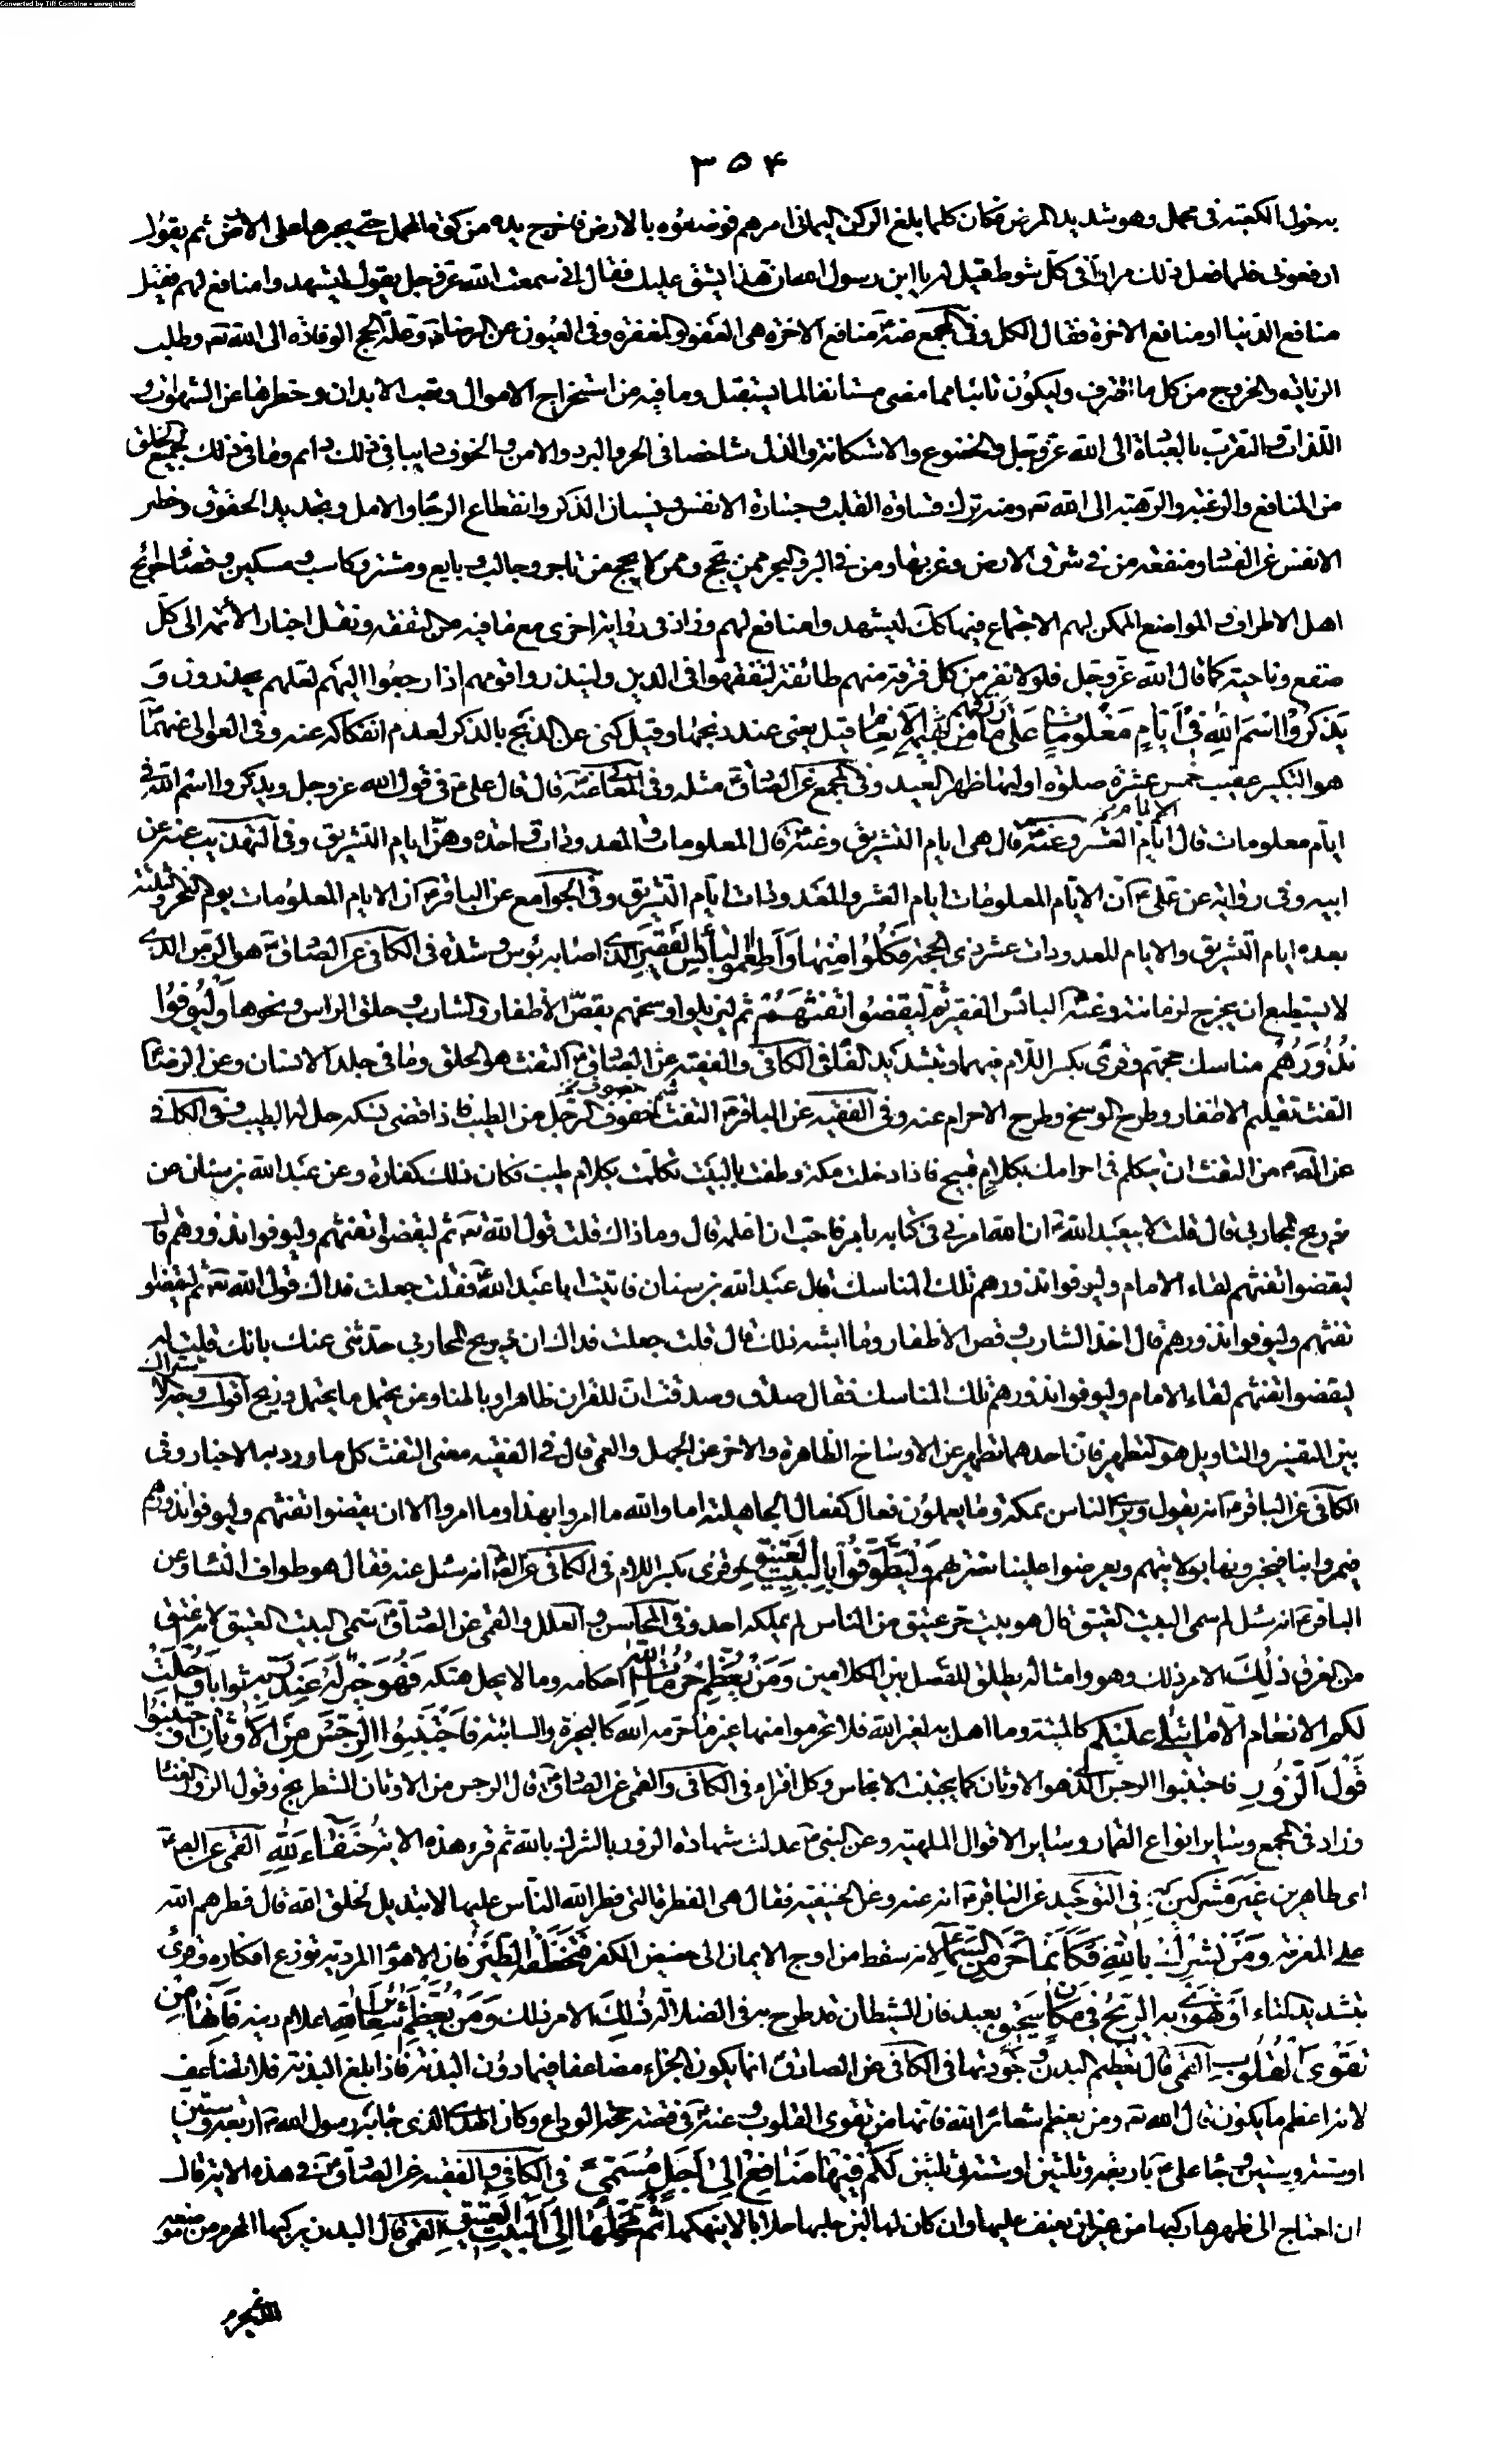 Converted by Tiff Combine - unregistered
٣٥۴
بدخول الكعبة فى محمل وهو شديد المرض فكان كلما بلغ الركن اليمانى امرهم فوضعوه بالارض فاخرج يده من كوة المحمل حتى يجرها على الارض ثم يقول
ارفعونى فلما فعل ذلك مرارا فى كل شوط قيل له يا ابن رسول الله ان هذا يشق عليك فقال انى سمعت الله عز وجل يقول ليشهدوا منافع لهم فقيل
منافع الدنيا او منافع الاخرة فقال الكل وفى المجمع عنه منافع الاخرة هى العفو والمغفرة وفى العيون عن الرضا وعلة الحج الوفادة الى الله تعـ وطلب
الزيادة والخروج من كل ما اقترف وليكون تائبا مما مضى مستانفا لما يستقبل وما فيه من استخراج الاموال وتعب الابدان وخطرها عن الشهوات و
اللذات والتقرب بالعبادة الى الله عز وجل والخضوع والاستكانة والذل شاخصا فى الحر والبرد والامن والخوف دايبا فى ذلك دايم وما فى ذلك لجميع الخلق
من المنافع والرغبة والرهبة الى الله تعـ ومنه ترك قساوة القلب وجسارة الانفس ونسيان الذكر وانقطاع الرجا والامل وتجديد الحقوق وخطر
الانفس عن الفساد ومنفعة من فى شرق الارض وغربها ومن فى البر والبحر ممن يحج وممن لا يحج من تاجر وجالب وبايع ومشتر وكاسب ومسكين وقضاء حوائج
اهل الاطراف والمواضع الممكن لهم الاجتماع فيها كك ليشهدوا منافع لهم وزاد فى رواية اخرى مع ما فيه من التفقه ونقل اخبار الائمة الى كل
صقع وناحية كما قال الله عز وجل فلولا نفر من كل فرقة منهم طائفة ليتفقهوا فى الدين ولينذروا قومهم اذا رجعوا اليهم لعلهم يحذرون وَ
يَذْكُرُوا اسْمَ اللهِ فِى أَيَّامٍ مَعْلُومَاتٍ عَلَى مَا رَزَقَهُمْ مِنْ بَهِيمَةِ الأَنْعَامِ قيل يعنى عند ذبحها وقيل كنى عن الذبح بالذكر لعدم انفكاكه عنه وفى العوالى عنهما
هو التكبير عقيب خمس عشرة صلوة اوليها ظهر العيد وفى المجمع عن الصادق مثله وفى المعانى عنه قال قال على ع فى قول الله عز وجل ويذكروا اسم الله فى
ايام معلومات قال ايام العشر وعنه قال هى ايام التشريق وعنه قال المعلومات والمعدودات واحدة وهن ايام التشريق وفى التهذيب عنه عن
ابيه وفى رواية عن على ع ان الايام المعلومات ايام العشر والمعدودات ايام التشريق وفى الجوامع عن الباقر ع ان الايام المعلومات يوم النحر وثلثة
بعده ايام التشريق والايام المعدودات عشر ذى الحجة فَكُلُوا مِنْهَا وَأَطْعِمُوا الْبَائِسَ الْفَقِيرَ الذى اصابه بؤس وشدة فى الكافى عن الصادق ع هو الزمن الذى
لا يستطيع ان يخرج لزمانته وعنه البائس الفقير ثُمَّ لْيَقْضُوا تَفَثَهُمْ ثم ليزيلوا وسخهم بقص الاظفار والشارب وحلق الراس ونحوها وَلْيُوفُوا
نُذُورَهُمْ مناسك حجهم وقرئ بكسر اللام فيهما وبتشديد الفا فى الكافى والفقيه عن الصادق التفث هو الحلق وما فى جلد الانسان وعن الرضا
التفث تقليم الاظفار وطرح الوسخ وطرح الاحرام عنه وفى الفقيه عن الباقر ع التفث حفوف الرجل من الطيب فاذا قضى نسكه حل له الطيب وفى الكافى
عن الصـ من التفث ان يتكلم فى احرامك بكلام قبيح فاذا دخلت مكة وطفت بالبيت تكلمت بكلام طيب فكان ذلك كفارة وعن عبد الله بن سنان عن
ذريح المحاربى قال قلت لابى عبد الله ان الله امرنى فى كتابه بامر فاحب ان اعلمه قال وما ذاك قلت قول الله تعـ ثم ليقضوا تفثهم وليوفوا نذورهم قال
ليقضوا تفثهم لقاء الامام وليوفوا نذورهم تلك المناسك قال عبد الله بن سنان فاتيت ابا عبد الله فقلت جعلت فداك قول الله تعـ ثم ليقضوا
تفثهم وليوفوا نذورهم قال اخذ الشارب وقص الاظفار وما اشبه ذلك قال قلت جعلت فداك ان ذريح المحاربى حدثنى عنك بانك قلت له
ليقضوا تفثهم لقاء الامام وليوفوا نذورهم تلك المناسك فقال صدق وصدقت ان للقران ظاهرا وباطنا ومن يحتمل ما يحتمل ذريح اقول وجه الاشتراك
بين التفسير والتاويل هو التطهير فان احدهما تطهير عن الاوساخ الظاهرة والاخر عن الجهل والعمى قال فى الفقيه معنى التفث كل ما ورد به الاخبار وفى
الكافى عن الباقر ع انه يقول ويرى الناس بمكة وما يعملون فعال كفعال الجاهلية اما والله ما امروا بهذا وما امروا الا ان يقضوا تفثهم وليوفوا نذورهم
فيمروا بنا فيخبرونا بولايتهم ويعرضوا علينا نصرتهم وَلْيَطَّوَّفُوا بِالْبَيْتِ الْعَتِيقِ وقرئ بكسر اللام فى الكافى عن الصـ انه سئل عنه فقال هو طواف النساء وعن
الباقر ع انه سئل لم سمى البيت العتيق قال هو بيت حر عتيق من الناس لم يملكه احد وفى المحاسن والعلل والقمى عن الصادق سمى البيت العتيق لانه عتق
من الغرق ذَلِكَ الامر ذلك وهو وامثاله يطلق للفصل بين الكلامين وَمَنْ يُعَظِّمْ حُرُمَاتِ اللهِ احكامه وما لا يحل هتكه فَهُوَ خَيْرٌ لَهُ عِنْدَ رَبِّهِ ثوابا وَأُحِلَّتْ
لَكُمُ الأَنْعَامُ إِلاَّ مَا يُتْلَى عَلَيْكُمْ كالميتة وما اهل به لغير الله فلا تحرموا منها غير ما حرمه الله كالبحيرة والسائبة فَاجْتَنِبُوا الرِّجْسَ مِنَ الأَوْثَانِ وَاجْتَنِبُوا
قَوْلَ الزُّورِ فاجتنبوا الرجس الذى هو الاوثان كما يجتنب الانجاس وكل افتراء فى الكافى والقمى عن الصادق قال الرجس من الاوثان الشطرنج وقول الزور الغنا
وزاد فى المجمع وساير انواع القمار وساير الاقوال الملهية وعن النبى ص عدلت شهادة الزور بالشرك بالله ثم قرء هذه الاية حُنَفَاءَ لِلَّهِ القمى عن الصـ
اى طاهرين غَيْرَ مُشْرِكِينَ بِهِ فى التوحيد عن الباقر ع انه عنه وعن الحنيفية فقال هى الفطرة التى فطر الله الناس عليها لا تبديل لخلق الله قال فطرهم الله
على المعرفة وَمَنْ يُشْرِكْ بِاللهِ فَكَأَنَّمَا خَرَّ مِنَ السَّمَاءِ لانه سقط من اوج الايمان الى حضيض الكفر فَتَخْطَفُهُ الطَّيْرُ فان الاهواء المردية توزع افكاره وقرئ
بتشديد الطاء أَوْ تَهْوِى بِهِ الرِّيحُ فِى مَكَانٍ سَحِيقٍ بعيد فان الشيطان قد طرح به فى الضلالة ذَلِكَ الامر ذلك وَمَنْ يُعَظِّمْ شَعَائِرَ اللهِ اعلام دينه فَإِنَّهَا مِنْ
تَقْوَى الْقُلُوبِ القمى قال تعظيم البدن وجودتها فى الكافى عن الصادق انما يكون الجزاء مضاعفا فيما دون البدنة فاذا بلغ البدنة فلا تضاعف
لانه اعظم ما يكون قال الله تعـ ومن يعظم شعائر الله فانها من تقوى القلوب وعنه فى قصة حجة الوداع وكان الهدى الذى جاء به رسول الله ص اربعة وستين
او ستة وستين وجاء على ع باربعة وثلثين او ستة وثلثين لَكُمْ فِيهَا مَنَافِعُ إِلَى أَجَلٍ مُسَمًّى فى الكافى والفقيه عن الصادق فى هذه الاية قال
ان احتاج الى ظهرها ركبها من غير ان يعنف عليها وان كان لها لبن حلبها حلابا لا ينهكها ثُمَّ مَحِلُّهَا إِلَى الْبَيْتِ الْعَتِيقِ القمى قال البدن يركبها المحرم من موضعه